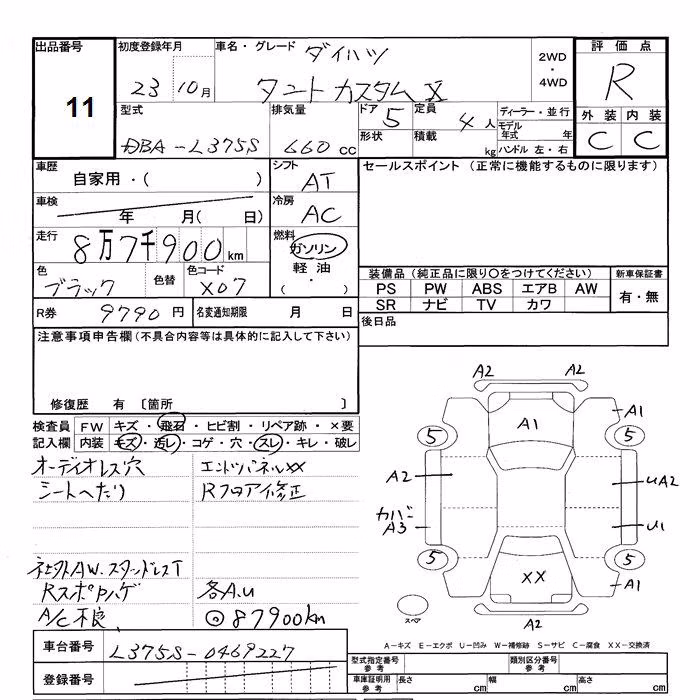 出品番号
11
初度登録年月
23 10月
車名・グレード
ダイハツ
タント カスタム X
2WD
・
4WD
評価点
R
外装 内装
C C
型式
DBA-L375S
排気量
660 cc
ドア 5
形状
定員 4人
積載 kg
ディーラー・並行
モデル年式 年
ハンドル 左・右
車歴
自家用・( )
シフト
AT
セールスポイント (正常に機能するものに限ります)
車検
年 月( 日)
冷房
AC
走行
8万7千900km
燃料
ガソリン
軽油
( ・ )
色
ブラック
色替
色コード
X07
装備品 (純正品に限り○をつけてください)
PS PW ABS エアB AW
SR ナビ TV カワ
新車保証書
有・無
R券 9790円
名変通知期限 月 日
後日品
注意事項申告欄(不具合内容等は具体的に記入して下さい)
修復歴 有 〔箇所 〕
検査員記入欄
FW キズ・飛石・ヒビ割・リペア跡・×要
内装 キズ・汚レ・コゲ・穴・スレ・キレ・破レ
オーディオレス穴
エンドパネルXX
シートへたり
Rフロア修正
社外AW.スタッドレスT
Rスポハゲ
各A.U
A/C不良
◎87900km
A2 A2
A1 A1
5 5
A2 UA2
カバー
A3 U1
5 5
XX A1
A2
スペア
A-キズ E-エクボ U-凹み W-補修跡 S-サビ C-腐食 XX-交換済
車台番号
L375S-0469227
登録番号
型式指定番号
参考
類別区分番号
参考
車庫証明用
参考
長さ cm 幅 cm 高さ cm